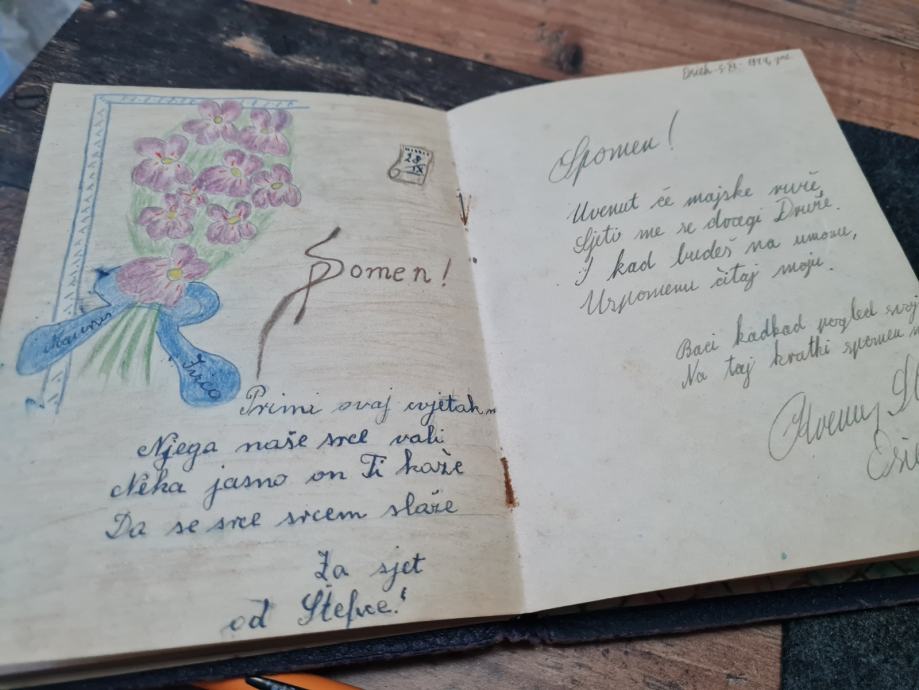 28
IX
Spomen!
Primi ovaj cvjetak
Njega naše srce vali
Neka jasno on Ti kaže
Da se srce srcem slaže
Za sjet
od Štefice!
Spomen!
Uvenut će majske ruže,
Sjeti me se dragi Druže.
I kad budeš na umoru,
Uspomenu čitaj moju.
Baci kadkad pogled svoj
Na taj kratki spomen